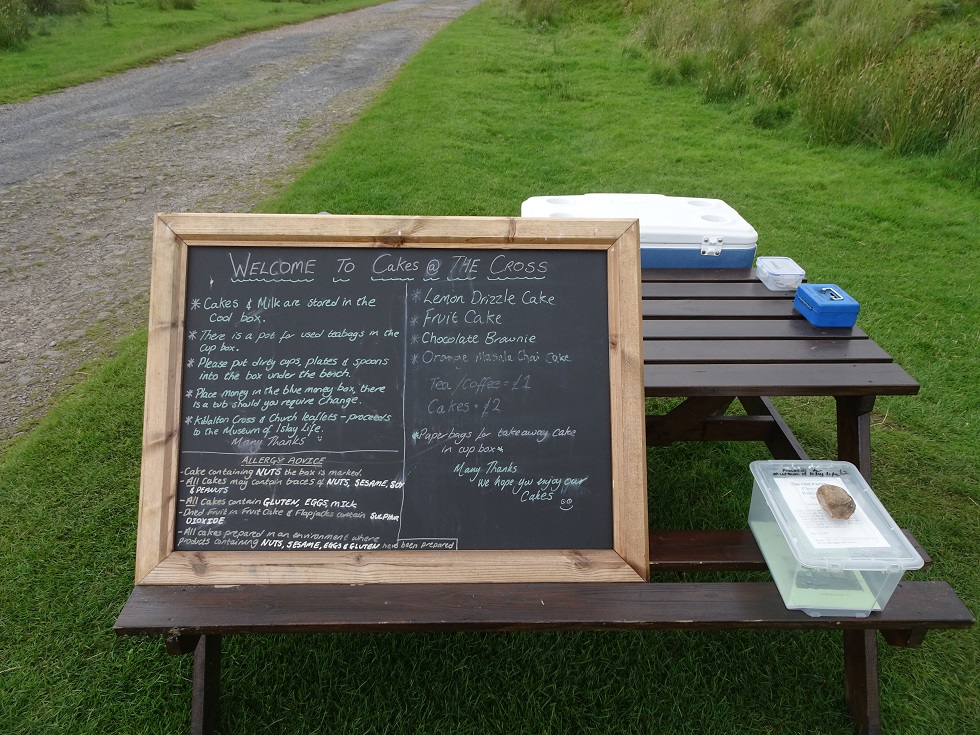 WELCOME TO CAKES @ THE CROSS
* Cakes & Milk are stored in the
Cool box.
* There is a pot for used teabags in the
cup box.
* Please put dirty cups, plates & spoons
into the box under the bench.
* Place money in the blue money box, there
is a tub should you require change.
* Kildalton Cross & Church leaflets - proceeds
to the Museum of Islay Life.
Many Thanks
ALLERGY ADVICE
- Cake containing NUTS the box is marked.
- All Cakes may contain traces of NUTS, SESAME, SOY
& PEANUTS
- All Cakes contain GLUTEN, EGGS, MILK
- Dried Fruit in Fruit Cake & Flapjacks contain SULPHUR
DIOXIDE
- All cakes prepared in an environment where
products containing NUTS, SESAME, EGGS & GLUTEN have been prepared
* Lemon Drizzle Cake
* Fruit Cake
* Chocolate Brownie
* Orange Masala Chai Cake
Tea/Coffee = £1
Cakes = £2
* Paper bags for takeaway cake
in cup box *
Many Thanks
We hope you enjoy our
Cakes